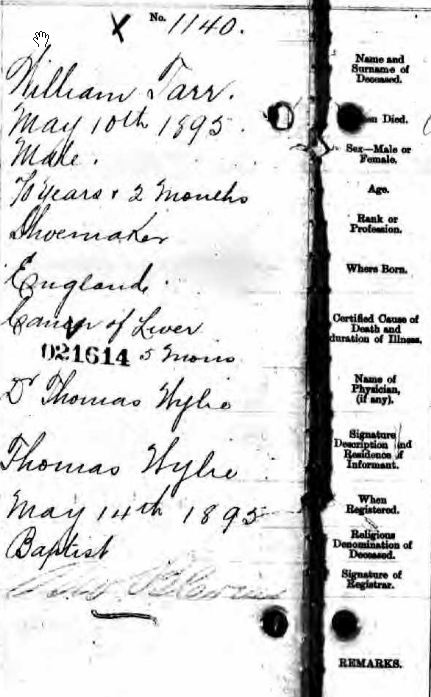 No. 1140.
William Tarr.
May 10th 1895.
Male.
70 Years & 2 Months
Shoemaker
England.
Cancer of Liver
021614 5 Mons
Dr Thomas Wylie
Thomas Wylie
May 14th 1895
Baptist
Name and
Surname of
Deceased.
Died.
Sex—Male or
Female.
Age.
Rank or
Profession.
Where Born.
Certified Cause of
Death and
duration of Illness.
Name of
Physician,
(if any).
Signature
Description and
Residence of
Informant.
When
Registered.
Religious
Denomination of
Deceased.
Signature of
Registrar.
REMARKS.